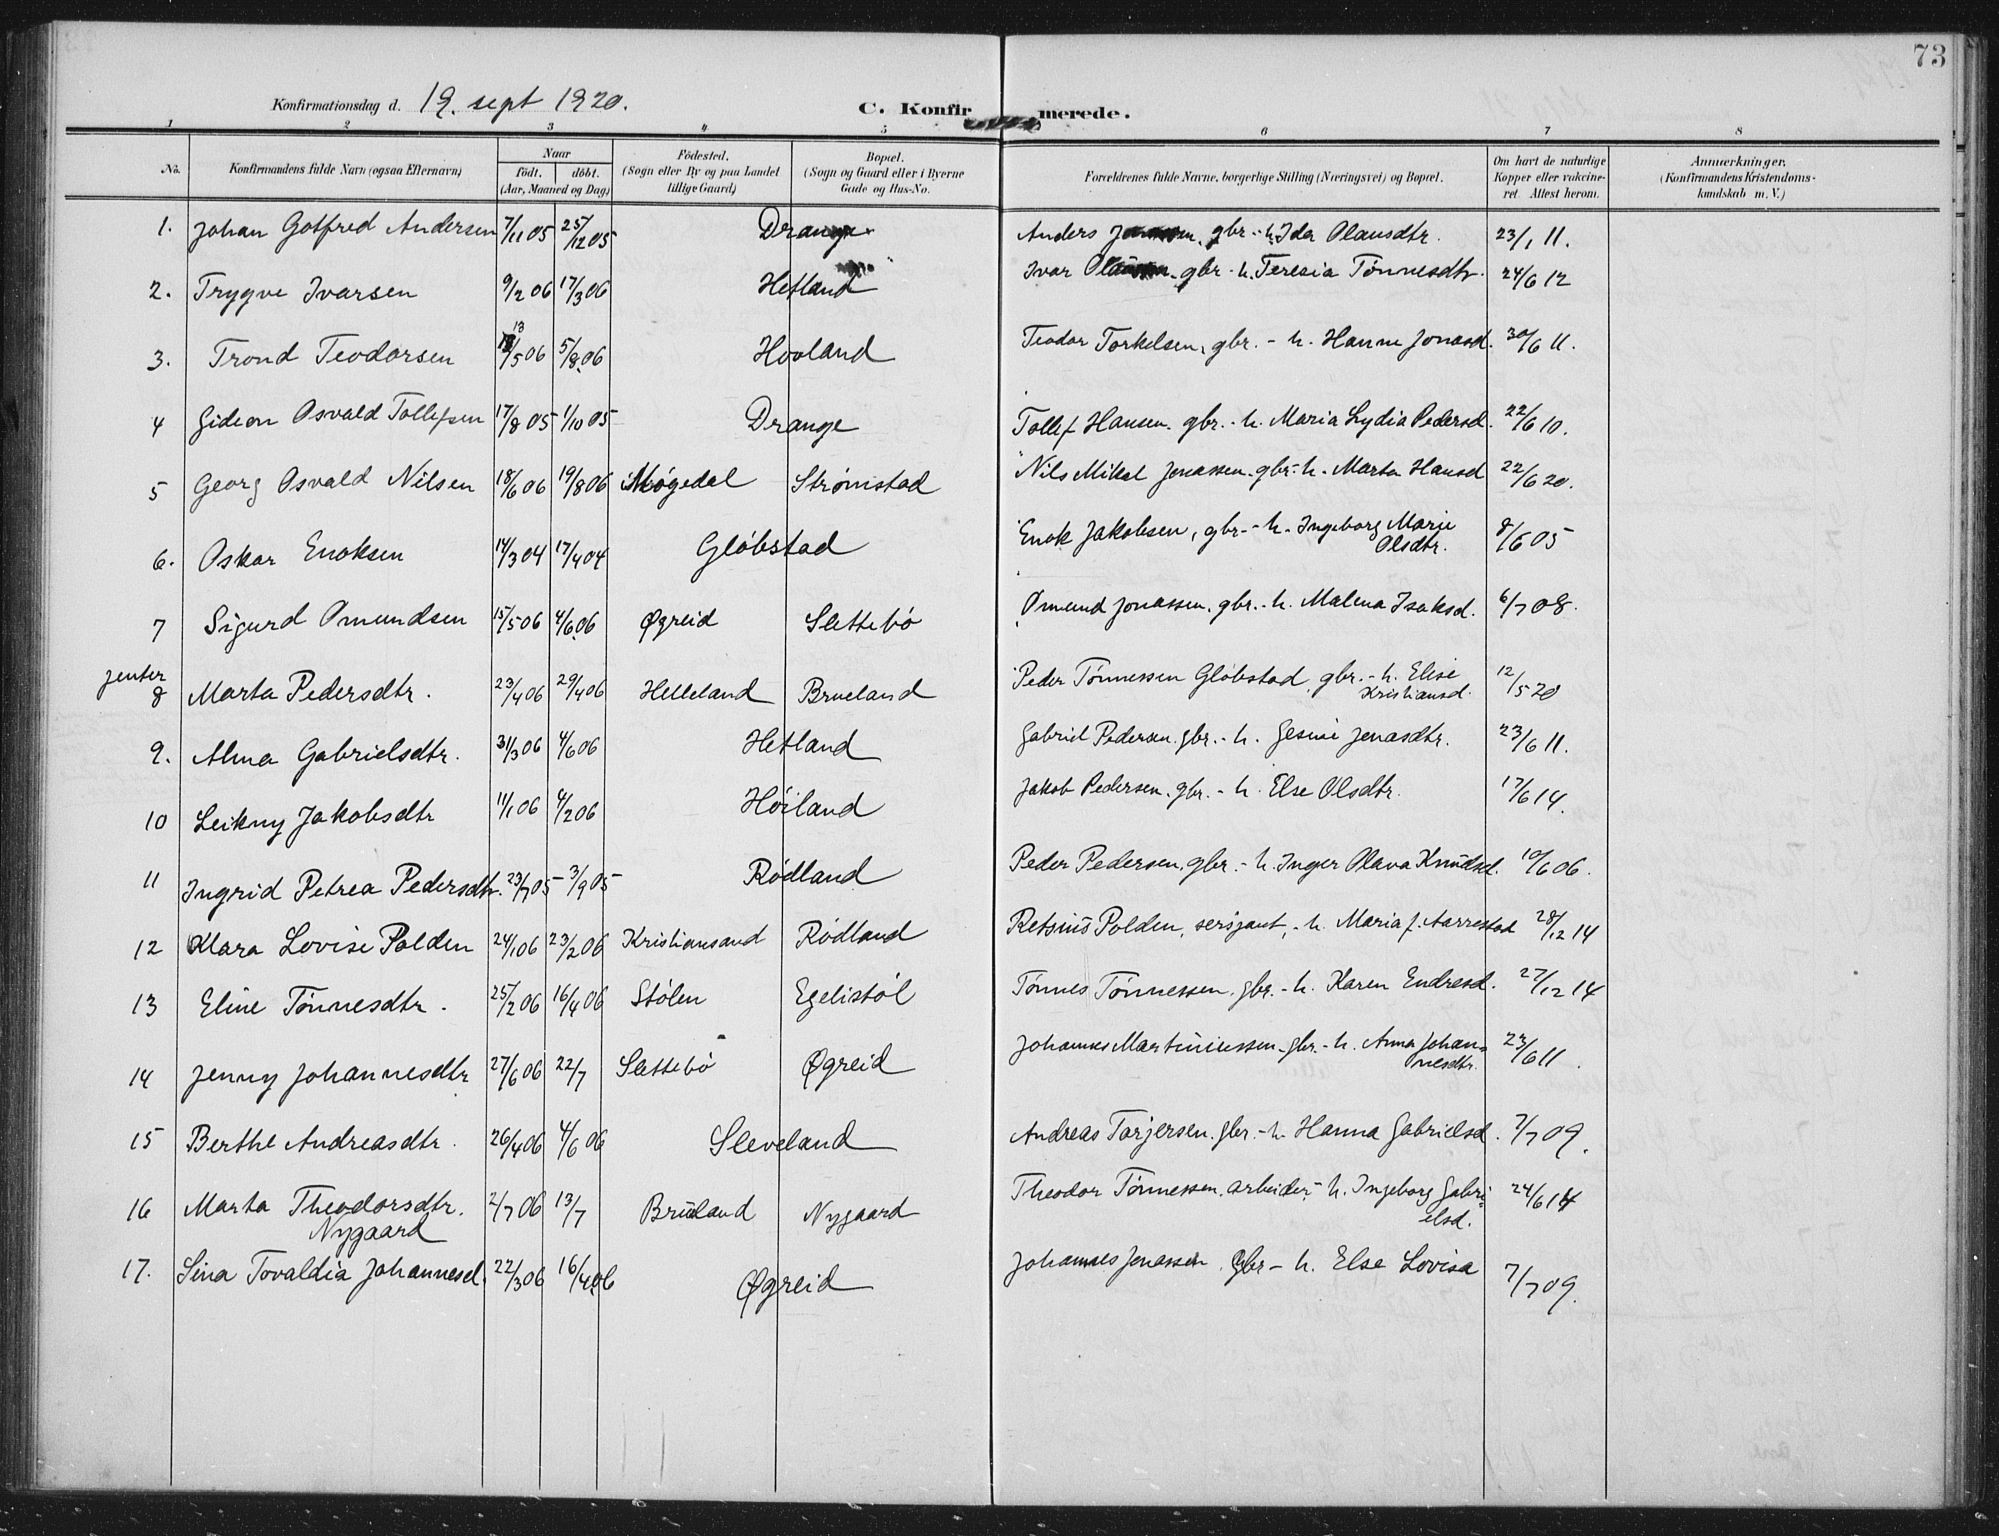 73
Konfirmationsdag d. 19. sept 1920. C. Konfirmerede.
1 2 3 4 5 6 7 8
No. Konfirmandens fulde Navn (ogsaa Efternavn) Naar födt. döbt. (Aar, Maaned og Dag) Födested. (Sogn eller By og paa Landet tillige Gaard) Bopæl. (Sogn og Gaard eller i Byerne Gade og Hus-No. Forældrenes fulde Navne, borgerlige Stilling (Næringsvei) og Bopæl. Om havt de naturlige Kopper eller vaccineret. Attest herom. Anmerkninger. (Konfirmandens Kristendomskundskab m. V.)
1. Johan Gotfred Andersen 7/11 05 25/12 05 Drange Anders gbr. - h. Ida Olausdtr. 23/1 11.
2. Trygve Ivarsen 9/2 06 17/3 06 Hetland Ivar gbr. - h. Teresia Tønnesdtr. 24/6 12
3. Trond Teodorsen 13/5 06 5/8 06 Hovland Teodor Torkelsen, gbr. - h. Hanne Jonasd. 30/6 11.
4 Gideon Osvald Tollefsen 17/8 05 1/10 05 Drange Tollef Hansen. gbr. - h. Maria Lydia Pedersd. 22/6 10.
5 Georg Osvald Nilsen 18/6 06 19/8 06 Møgedal Strømstad Nils Mikal Jonassen. gbr. - h. Marta Hansd 22/6 20.
6. Oskar Enoksen 14/3 04 17/4 04 Gløbstad Enok Jakobsen, gbr. - h. Ingeborg Marie Olsdtr. 8/6 05
7 Sigurd Omundsen 15/5 06 4/6 06 Øgreid Slettebø Omund Jonassen. gbr. - h. Malena Isaksd. 6/7 08.
jenter
8 Marta Pedersdtr. 23/4 06 29/4 06 Helleland Brueland Peder Tønnessen Gløbstad, gbr. - h. Elise Kristiansd. 12/5 20
9. Alma Gabrielsdtr. 31/3 06 4/6 06 Hetland Gabriel Pedersen. gbr. - h. Gesine Jonasdtr. 23/6 11.
10 Leikny Jakobsdtr 11/1 06 4/2 06 Høiland Jakob Pedersen. gbr. - h. Else Olsdtr. 17/6 14.
11 Ingrid Petrea Pedersdtr. 23/7 05 3/9 05 Rødland Peder Pedersen. gbr. - h. Inger Olava Knudsd. 10/6 06.
12 Klara Lovise Polden 24/1 06 23/2 06 Kristiansand Rødland Retsius Polden, sersjant, - h. Maria f. Aarrestad 28/12 14
13 Eline Tønnesdtr. 25/2 06 16/4 06 Stølen Egelistøl Tønnes Tønnessen. gbr. - h. Karen Endresd. 27/12 14
14 Jenny Johannesdtr 27/6 06 22/7 Slettebø Øgreid Johannes Martiniussen. gbr. - h. Anna Johannesdtr. 23/6 11.
15 Berthe Andreasdtr. 26/4 06 4/6 06 Sleveland Andreas Torjersen. gbr. - h. Hanna Gabrielsd. 7/7 09.
16 Marta Theodorsdtr. Nygaard 2/7 06 13/7 Brueland Nygaard Theodor Tønnessen. arbeider - h. Ingeborg Gabrielsd. 24/6 14
17. Sina Tovaldia Johannesd. 22/3 06 16/4 06 Øgreid Johannes Jonassen. Gbr - h. Else Lovisa 7/7 09.